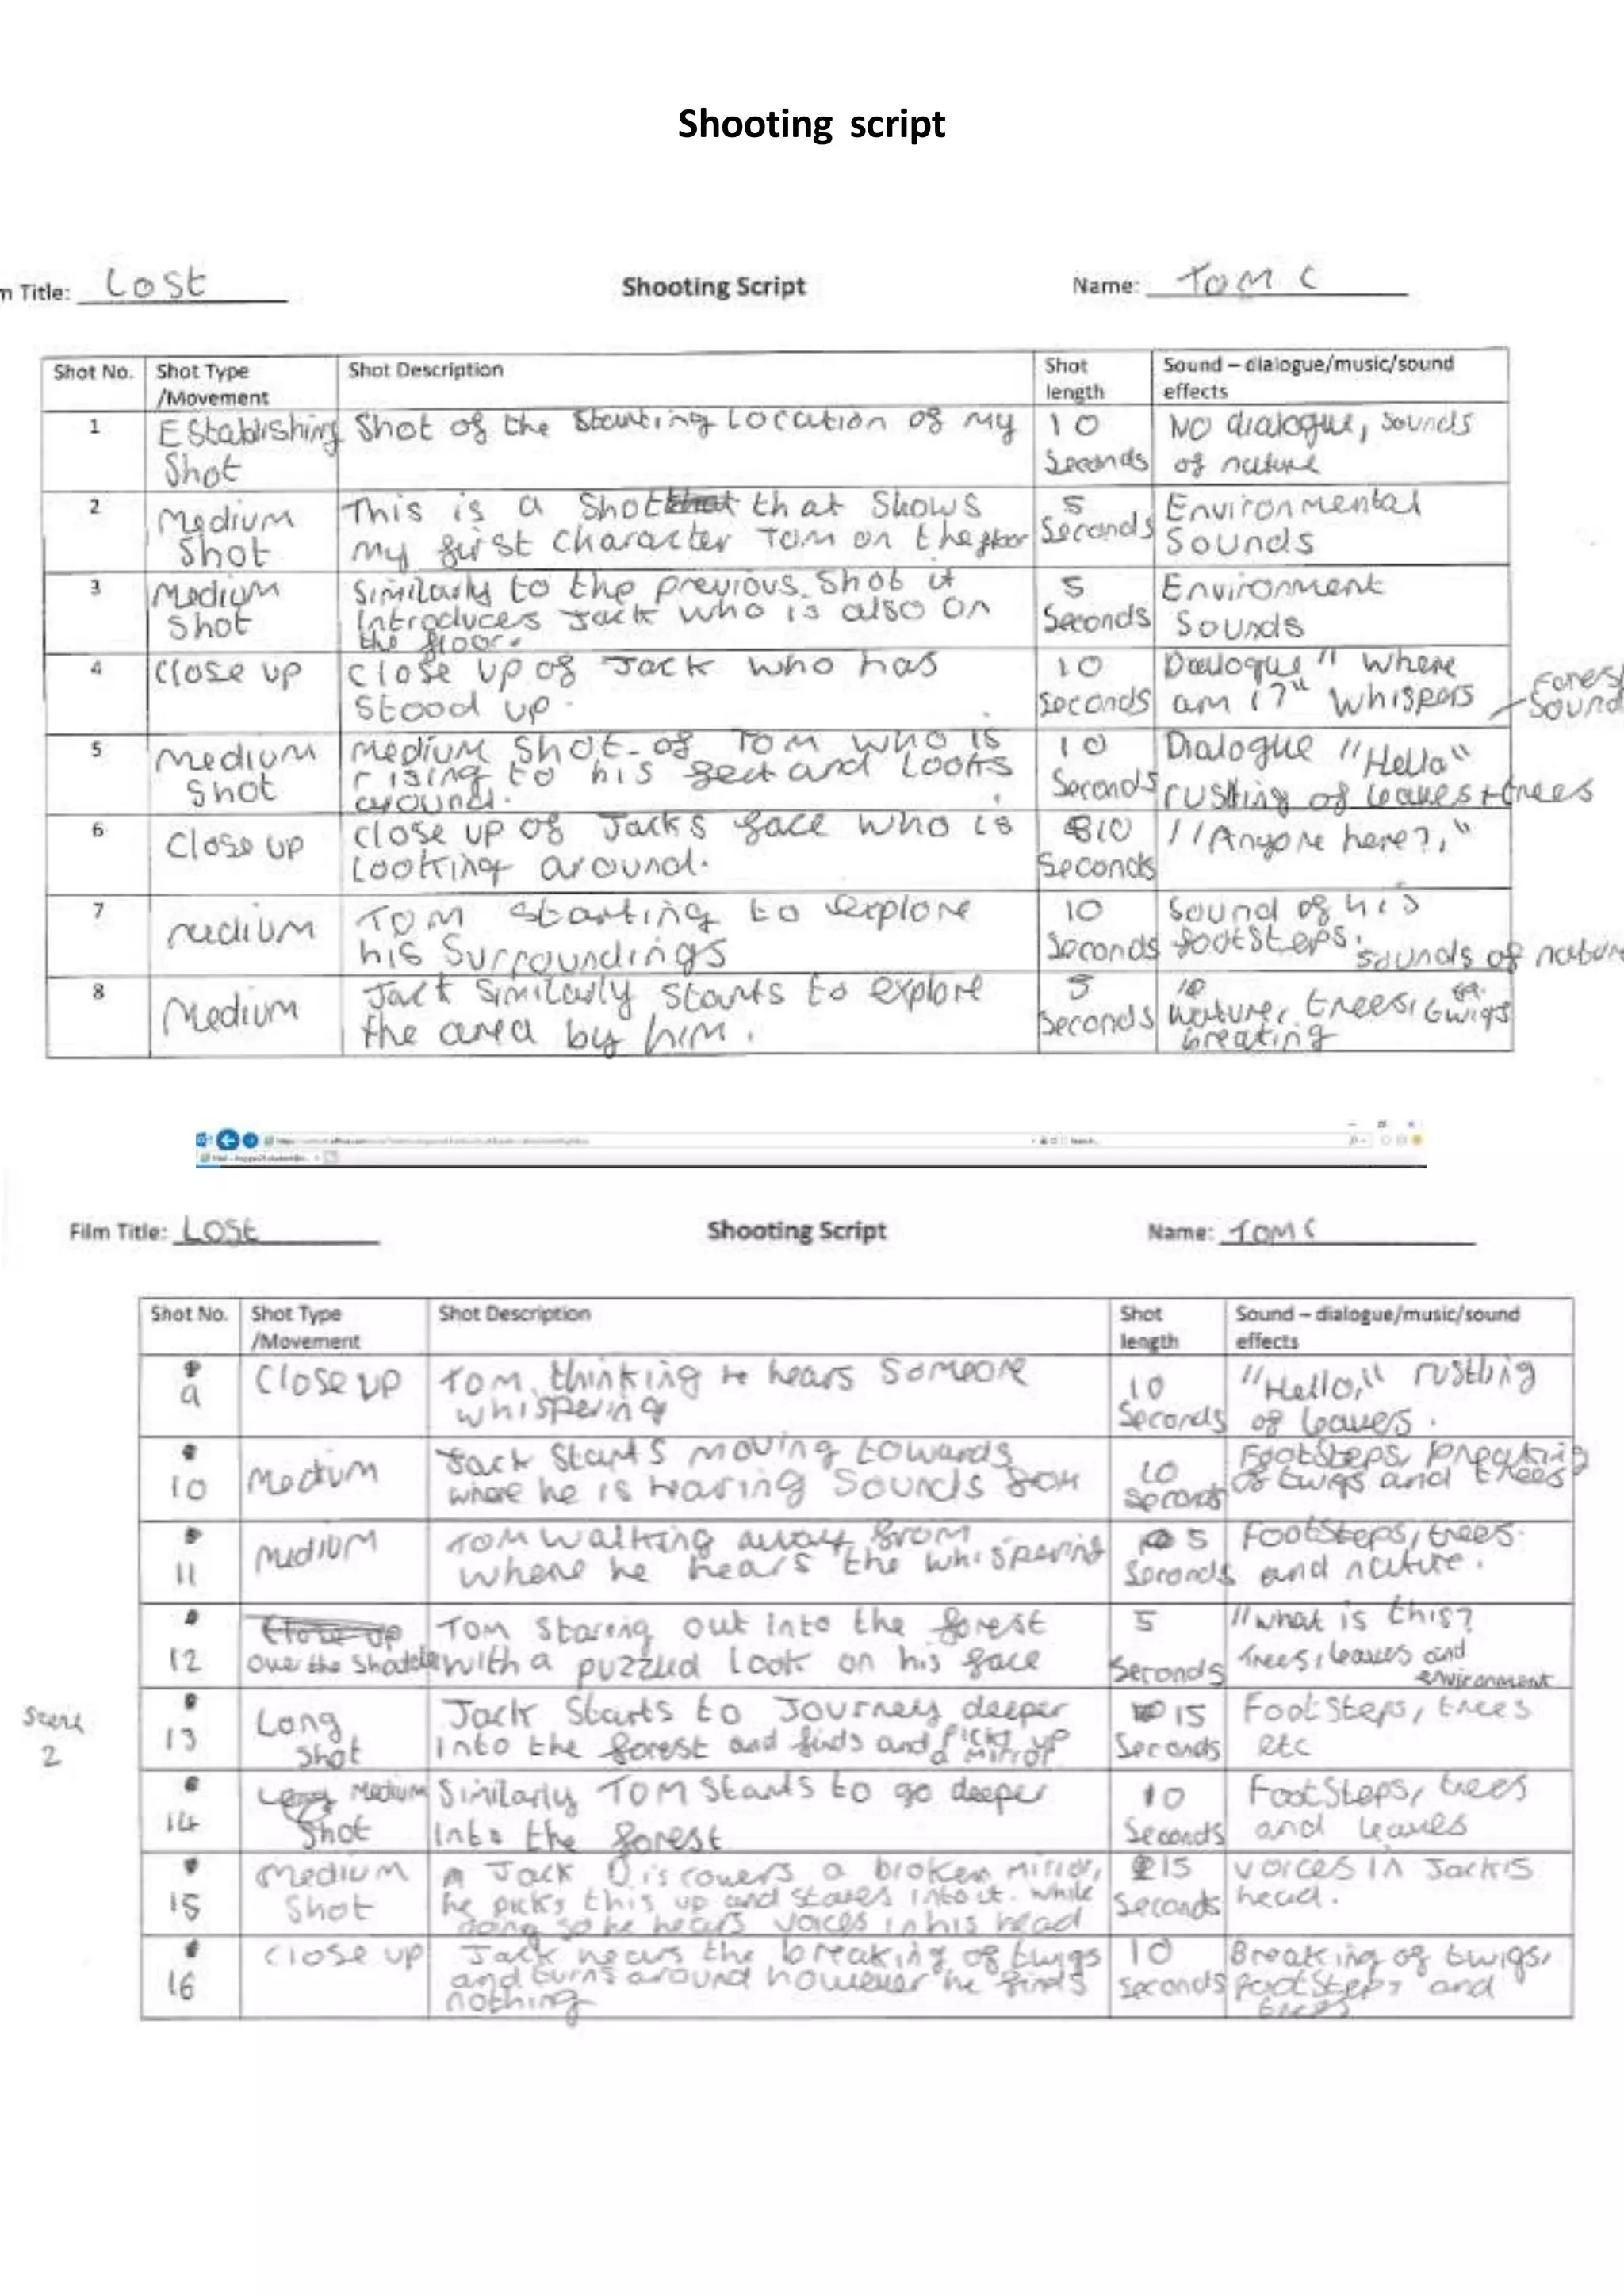 Shooting script
m Title: Lost
Shooting Script
Name: Tom C
Shot No.
Shot Type
/Movement
Shot Description
Shot
length
Sound – dialogue/music/sound
effects
1
Establishing
Shot
Shot of the Starting Location of my
10
Seconds
No dialogue, sounds
of nature
2
Medium
Shot
This is a Shot that Shows
my first character Tom on the floor
5
Seconds
Environmental
Sounds
3
Medium
Shot
Similarly to the previous shot it
introduces Jack who is also on
the floor.
5
Seconds
Environment
Sounds
4
Close up
Close up of Jack who has
Stood up.
10
Seconds
Dialogue "Where
am i?" Whispers
Forest
Sound
5
Medium
Shot
Medium Shot of Tom who is
rising to his feet and Looks
around.
10
Seconds
Dialogue "Hello"
rustling of leaves + trees
6
Close up
close up of Jacks face who is
Looking around.
10
Seconds
"Anyone here?,"
7
medium
Tom starting to explore
his Surroundings
10
Seconds
Sound of his
footsteps.
sounds of nature
8
Medium
Jack Similarly Starts to explore
the area by him.
5
Seconds
Nature, trees, twigs
breaking
Film Title: Lost
Shooting Script
Name: Tom C
Shot No.
Shot Type
/Movement
Shot Description
Shot
length
Sound – dialogue/music/sound
effects
9
Close up
Tom thinking he hears Someone
whispering
10
Seconds
"Hello," rustling
of leaves.
10
Medium
Jack Starts moving towards
where he is hearing Sounds from
10
Seconds
Footsteps, breaking
of twigs and trees
11
Medium
Tom walking away from
where he hears the whispering
5
Seconds
Footsteps, trees
and nature.
12
Close up
over the Shoulder
Tom Staring out into the forest
with a puzzled look on his face
5
Seconds
"what is this?
Trees, leaves and
environment
Scene
2
13
Long
Shot
Jack Starts to Journey deeper
into the forest and finds and picks up
a mirror
15
Seconds
Footsteps, trees
etc
14
Long Medium
Shot
Similarly Tom Starts to go deeper
into the forest
10
Seconds
Footsteps, trees
and leaves
15
Medium
Shot
Jack Discovers a broken mirror,
he picks this up and stares into it. While
doing so he hears voices in his head
15
Seconds
voices in Jack's
head.
16
Close up
Jack hears the breaking of twigs
and turns around however he finds
nothing
10
Seconds
Breaking of twigs,
footsteps and
trees